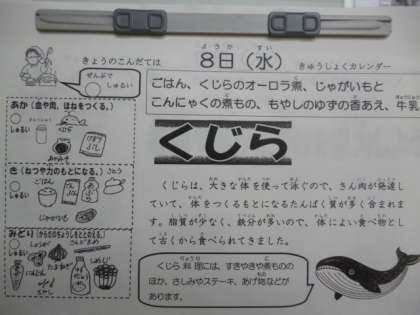 きょうのこんだては
8日(水)
ようか
すい
きゅうしょくカレンダー
ぜんぶで
しゅるい
ごはん、くじらのオーロラ煮、じゃがいもと
こんにゃくの煮もの、もやしのゆずの香あえ、牛乳
くじら
くじらは、大きな体を使って泳ぐので、きん肉が発達し
ていて、体をつくるもとになるたんぱく質が多く含まれま
す。脂質が少なく、鉄分が多いので、体によい食べ物とし
て古くから食べられてきました。
くじら料理には、すきやきや煮ものの
ほか、さしみやステーキ、あげ物などが
あります。
あか(血や肉、ほねをつくる。)
しゅるい
くじら
き(ねつや力のもとになる。)
しゅるい
ごはん
じゃがいも
さとう
みどり(からだのちょうしをととのえる。)
しゅるい
しょうが
たまねぎ
にんじん
もやし